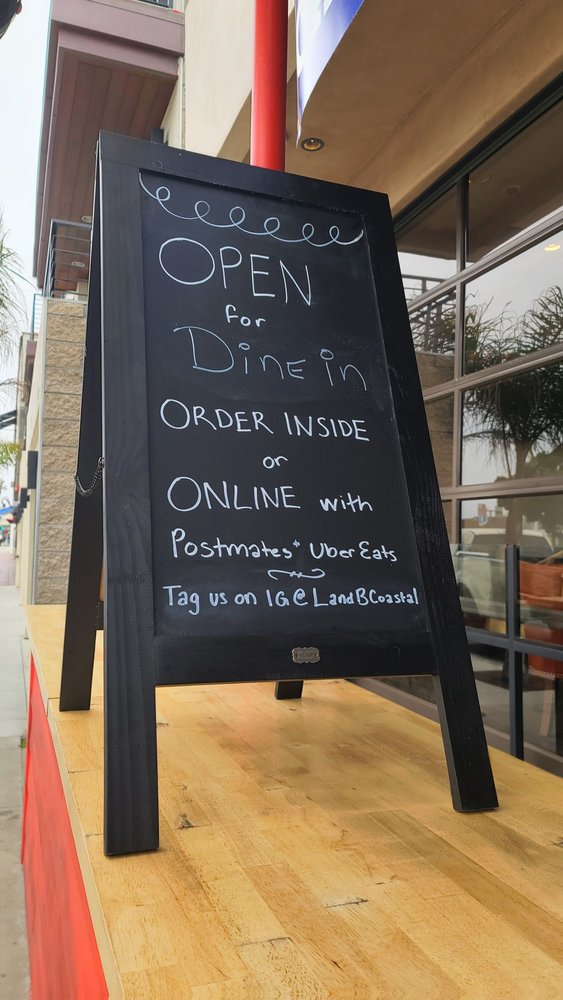 OPEN
for
Dine in
ORDER INSIDE
or
ONLINE with
Postmates + Uber Eats
Tag us on IG@LandBCoastal